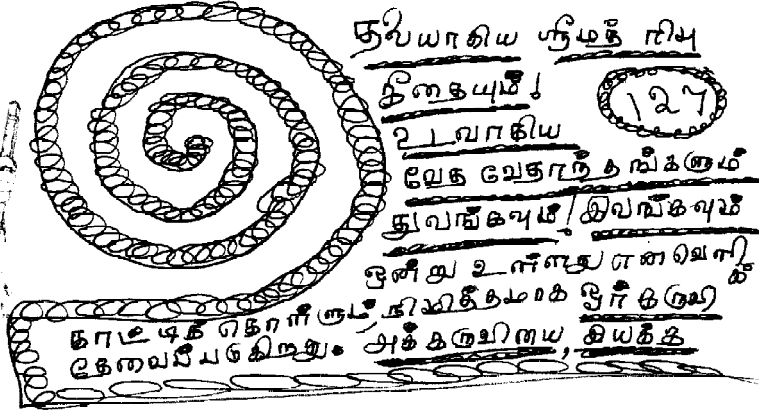 தவயாகிய ஸ்ரீமத் ரிபு
கீதையும்!
127
உடலாகிய
வேத வேதாந்தங்களும்
துவங்கவும்! இவங்கவும்
ஒன்று உள்ளது என வெளிக்
காட்டிக் கொள்ளும், நிமித்தமாக ஓர் கருவி
தேவைப்படுகிறது. அக்கருவியை, இயக்க